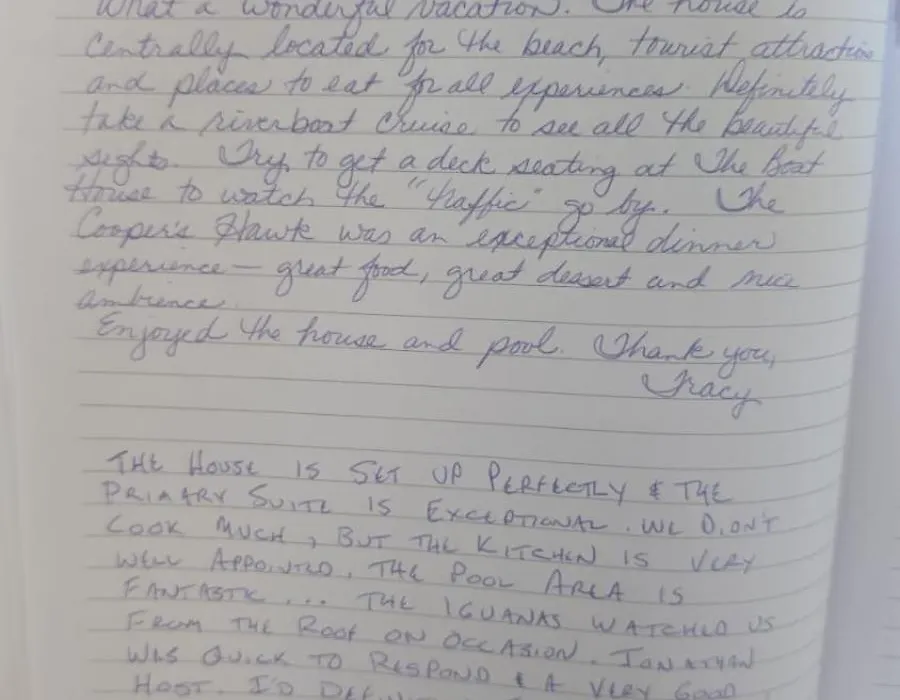 What a wonderful vacation. The house is
centrally located for the beach, tourist attraction
and places to eat for all experiences. Definitely
take a riverboat cruise to see all the beautiful
sights. Try to get a deck seating at The Boat
House to watch the "traffic" go by. The
Cooper's Hawk was an exceptional dinner
experience — great food, great dessert and nice
ambience.
Enjoyed the house and pool. Thank you,
Tracy
THE HOUSE IS SET UP PERFECTLY & THE
PRIMARY SUITE IS EXCEPTIONAL. WE DIDN'T
COOK MUCH, BUT THE KITCHEN IS VERY
WELL APPOINTED. THE POOL AREA IS
FANTASTIC ... THE IGUANAS WATCHED US
FROM THE ROOF ON OCCASION. JONATHAN
WAS QUICK TO RESPOND & A VERY GOOD
HOST. I'D